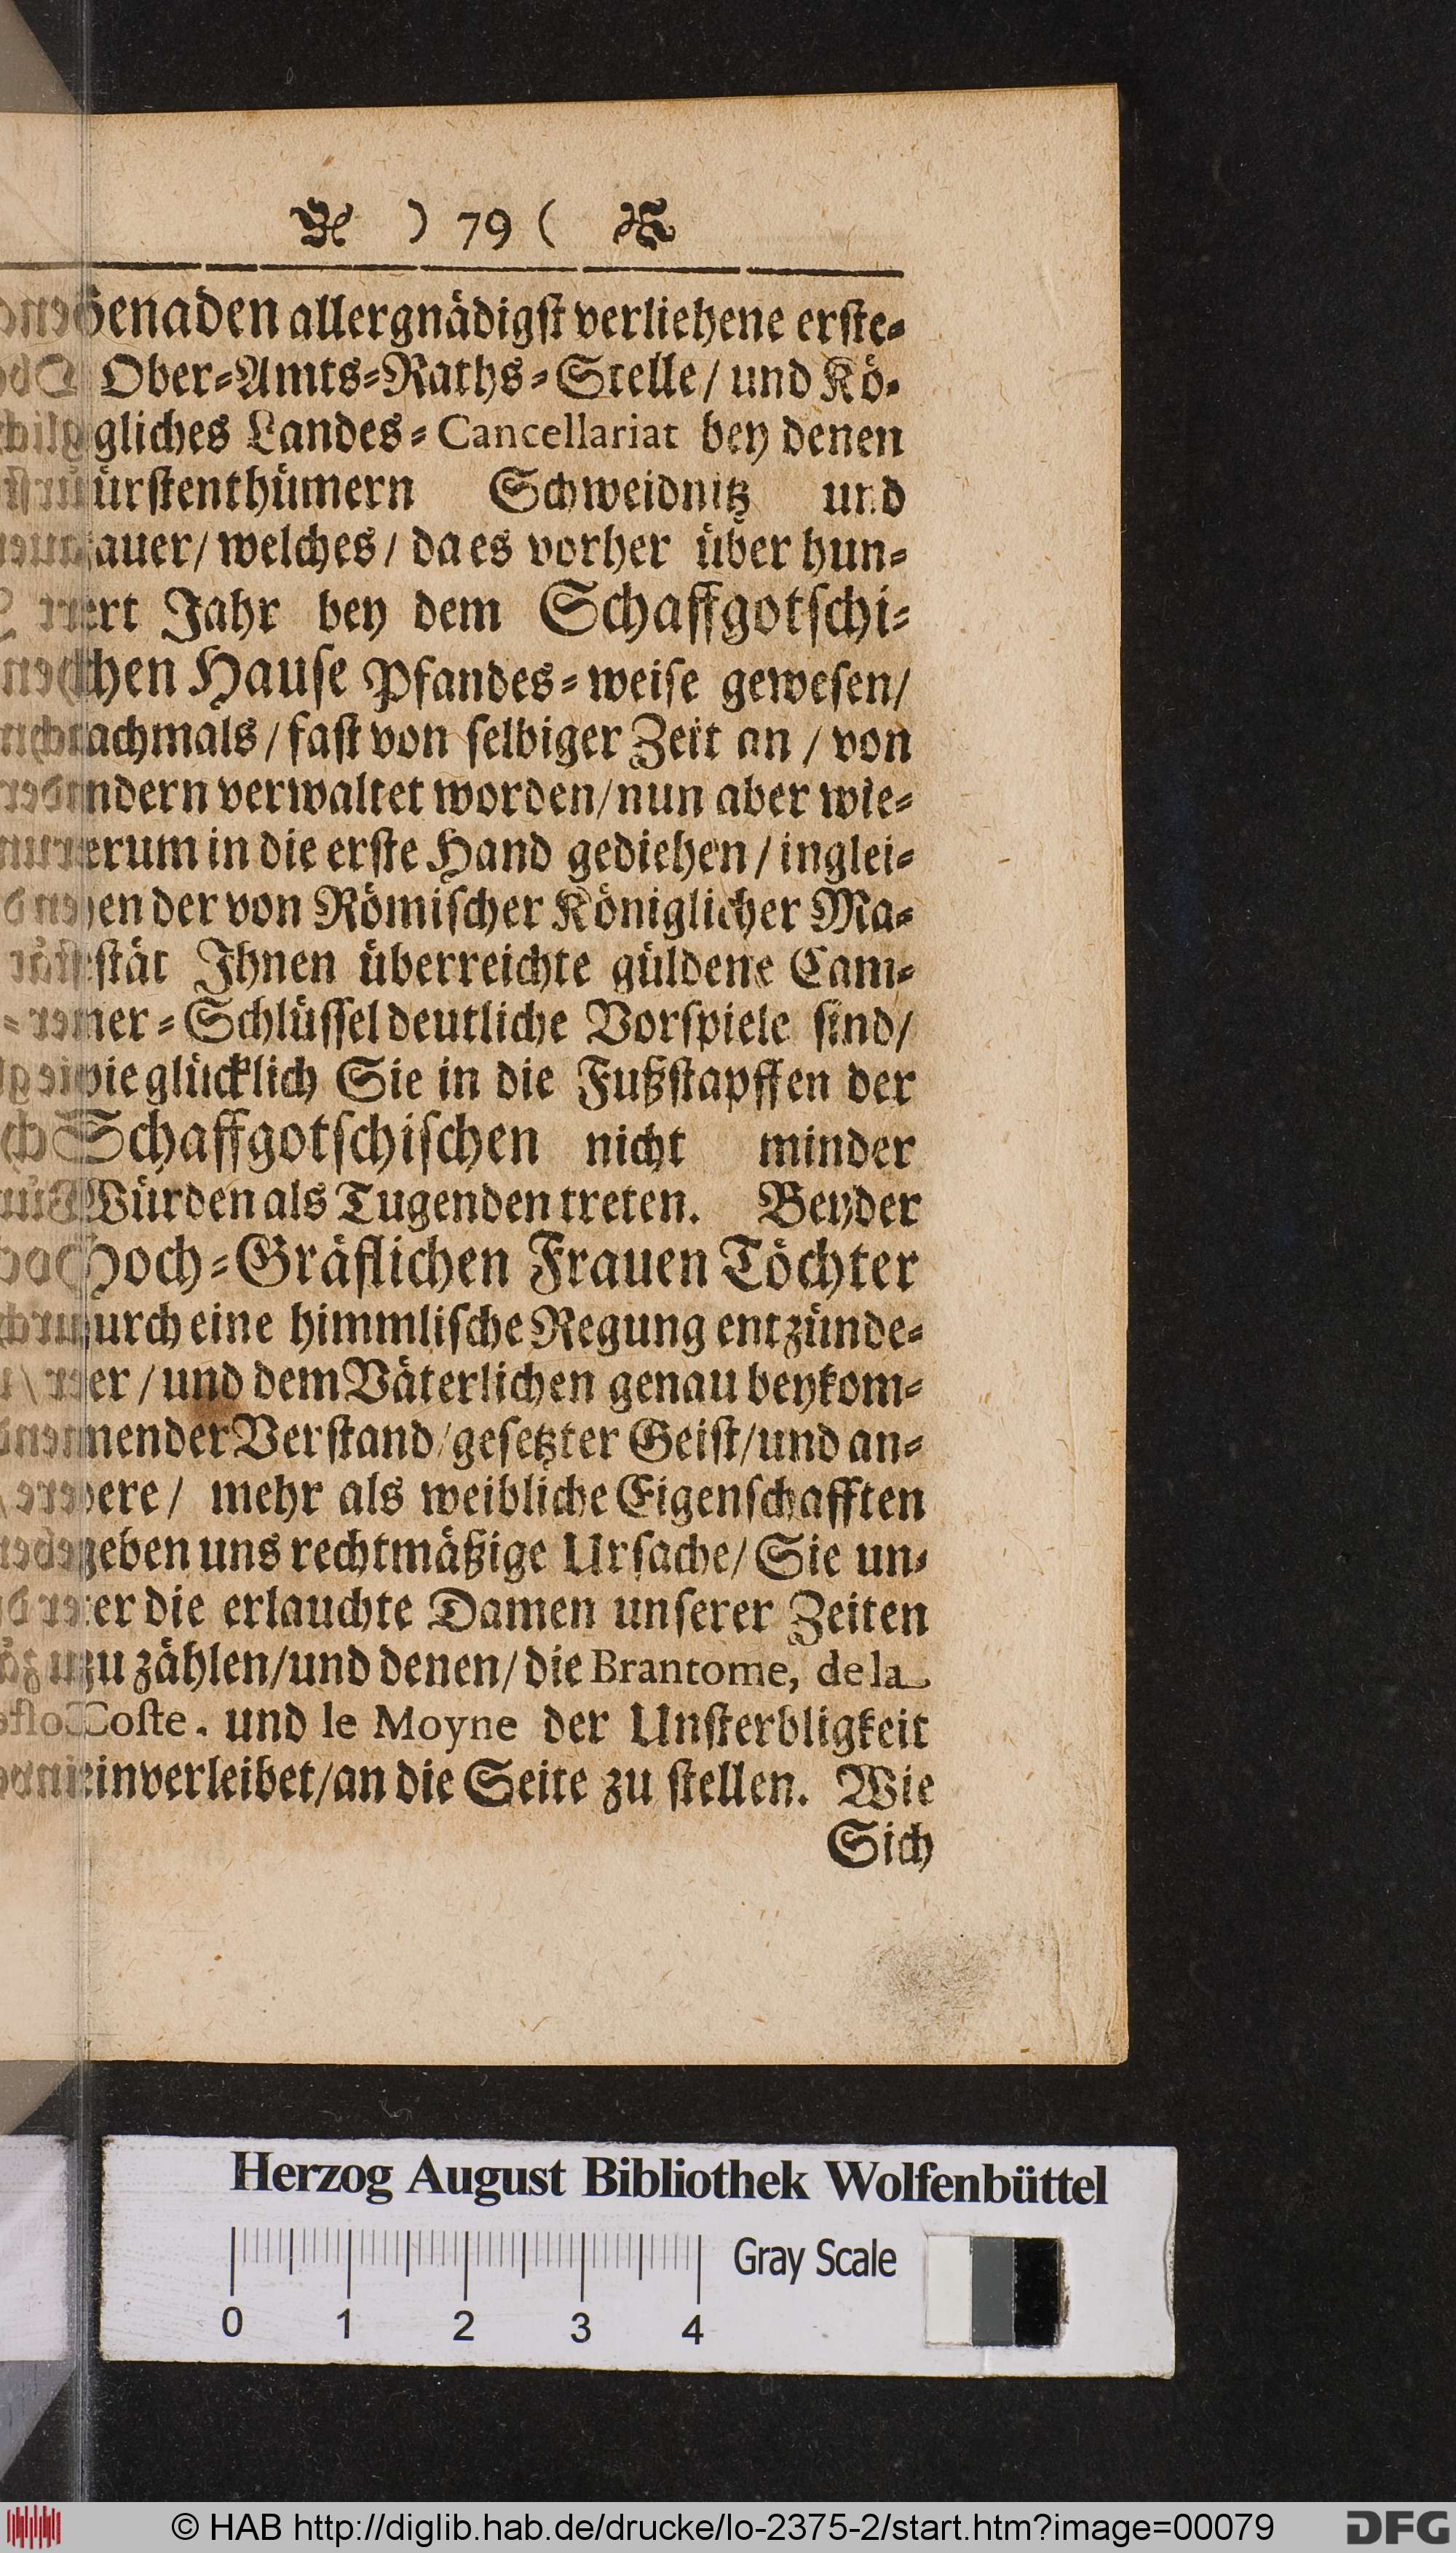 ) 79 (
Genaden allergnädigſt verliehene erſte⸗
Ober⸗Amts⸗Raths⸗Stelle/ und Kö⸗
gliches Landes⸗Cancellariat bey denen
ürſtenthümern Schweidnitz und
auer/ welches/ da es vorher über hun⸗
ert Jahr bey dem Schaffgotſchi⸗
chen Hauſe Pfandes⸗weiſe geweſen/
achmals/ faſt von ſelbiger Zeit an/ von
ndern verwaltet worden/ nun aber wie⸗
erum in die erſte Hand gediehen/ inglei⸗
en der von Römiſcher Königlicher Ma⸗
ſtät Ihnen überreichte güldene Cam⸗
mer⸗Schlüſſel deutliche Vorſpiele ſind/
wie glücklich Sie in die Fußſtapffen der
Schaffgotſchiſchen nicht minder
Würden als Tugenden treten. Beyder
Hoch⸗Gräflichen Frauen Töchter
urch eine himmliſche Regung entzünde⸗
er/ und dem Väterlichen genau beykom⸗
mender Verſtand/ geſetzter Geiſt/ und an⸗
dere/ mehr als weibliche Eigenſchafften
geben uns rechtmäßige Urſache/ Sie un⸗
er die erlauchte Damen unſerer Zeiten
zu zählen/ und denen/ die Brantome, de la
Coſte. und le Moyne der Unſterbligkeit
einverleibet/ an die Seite zu ſtellen. Wie
Sich
Herzog August Bibliothek Wolfenbüttel
Gray Scale
0 1 2 3 4
© HAB http://diglib.hab.de/drucke/lo-2375-2/start.htm?image=00079 DFG